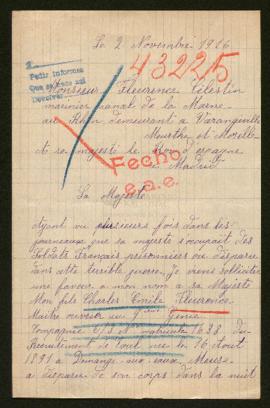 Le 2 Novembre 1916
43225
Pedir informes
Que se pide aqui
Devolver
Monsieur Fleurence Célestin
marinier canal de la Marne
au Rhin demeurant a Varangeville
Meurthe et Moselle
et sa majesté le Roi d'espagne
a Madrid
Fecho
e.a.e.
Sa Majesté
Ayant vu plusieurs fois dans les
journeaux que sa majesté s'occupait des
Soldats français prisonniers ou disparu
dans cette terrible guerre. Je viens sollicitée
une faveur a mon nom a sa Majesté
Mon fils Charles Emile Fleurence
Maitre ouvrier au 9eme Génie
Compagnie matricule 1698 du
Recrutement de Toul né le 16 Aout
1891 a Demange aux eaux Meuse
a disparu de son corps dans la nuit